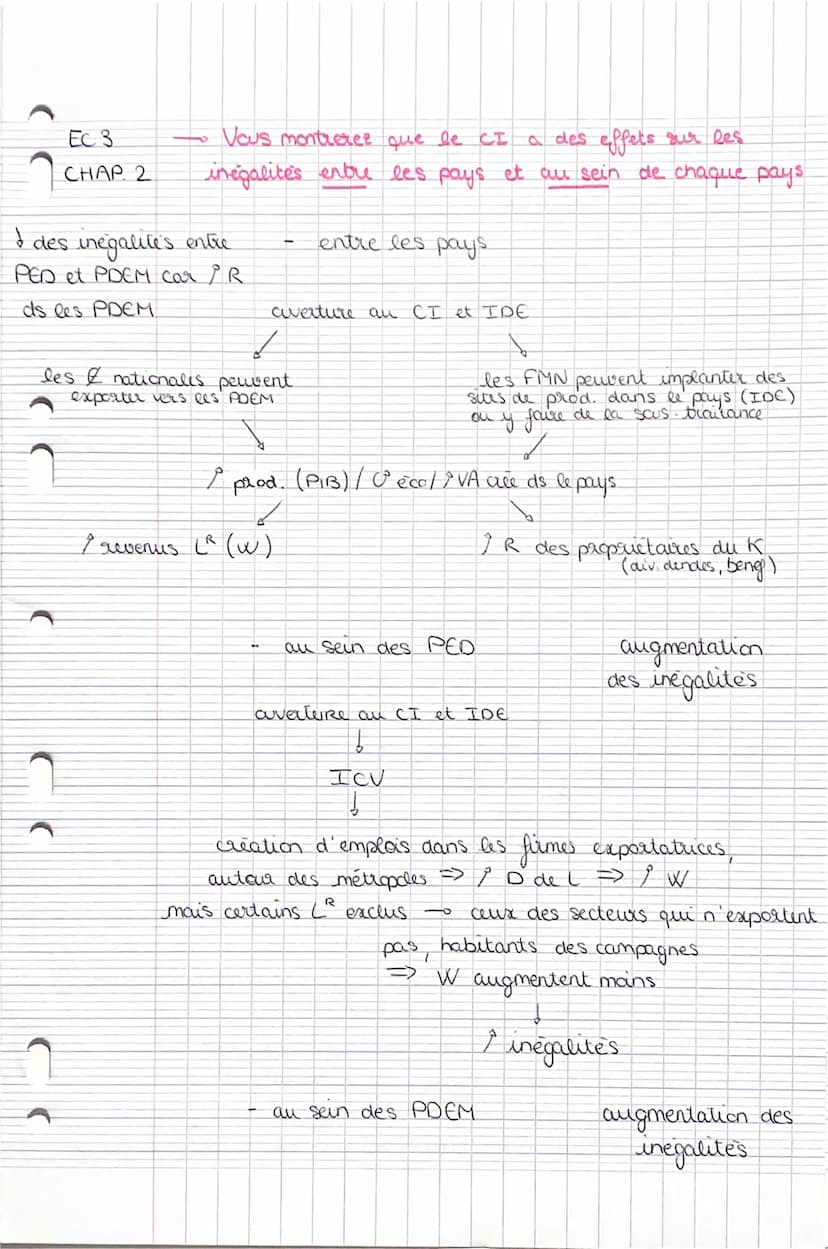 EC 3 → Vous montrerez que le CI a des effets sur les
CHAP. 2 inégalités entre les pays et au sein de chaque pays
↓ des inégalités entre - entre les pays
PED et PDEM car ↑ R
ds les PDEM ouverture au CI et IDE
↙ ↘
les E nationales peuvent les FMN peuvent implanter des
exporter vers les PDEM sites de prod. dans le pays (IDE)
ou y faire de la sous-traitance
↘ ↙
↑ prod. (PIB) / C° éco / ↑ VA créée ds le pays
↙ ↘
↑ revenus Lᴿ (W) ↑ R des propriétaires du K
(dividendes, benef)
- au sein des PED augmentation
des inégalités
ouverture au CI et IDE
↓
ICV
↓
création d'emplois dans les firmes exportatrices,
autour des métropoles => ↑ D de L => ↑ W
mais certains Lᴿ exclus → ceux des secteurs qui n'exportent
pas, habitants des campagnes
=> W augmentent moins
↓
↑ inégalités
- au sein des PDEM augmentation des
inégalités